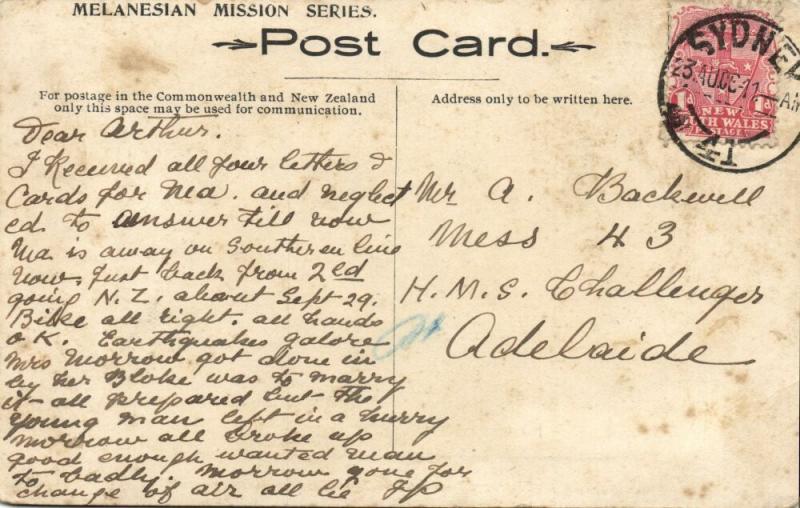 MELANESIAN MISSION SERIES.
Post Card.
For postage in the Commonwealth and New Zealand
only this space may be used for communication.
Address only to be written here.
SYDNEY
23 AUG
11 - AM
NEW
SOUTH WALES
POSTAGE
1d
1d
Dear Arthur.
I Received all four letters &
Cards for Ma. and neglect
ed to answer till now
Ma is away on Southeren line
now, Just back from
going N.Z. about Sept 29.
all right. all hands
O.K. Earthquakes galore
Mrs Morrow got done in
by her Bloke was to marry
it - all prepared but the
young man left in a hurry
Morrow all broke up
good enough wanted man
to badly. Morrow gone for
change of air all
Mr A. Backwell
Mess 43
H.M.S. Challenger
Adelaide